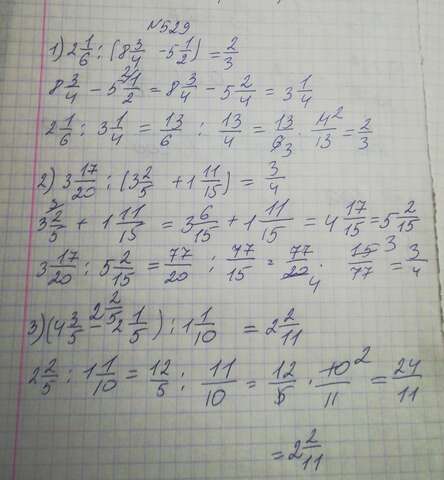 №529
1) 2 1/6 : (8 3/4 - 5 1/2) = 2/3
8 3/4 - 5 1/2 = 8 3/4 - 5 2/4 = 3 1/4
2 1/6 : 3 1/4 = 13/6 : 13/4 = 13/6 3 · 4 2/13 = 2/3
2) 3 17/20 : (3 2/5 + 1 11/15) = 3/4
3 2/5 + 1 11/15 = 3 6/15 + 1 11/15 = 4 17/15 = 5 2/15
3 17/20 : 5 2/15 = 77/20 : 77/15 = 77/20 4 · 15 3/77 = 3/4
2 2/5
3) (4 3/5 - 2 1/5) : 1 1/10 = 2 2/11
2 2/5 : 1 1/10 = 12/5 : 11/10 = 12/5 · 10 2/11 = 24/11
= 2 2/11